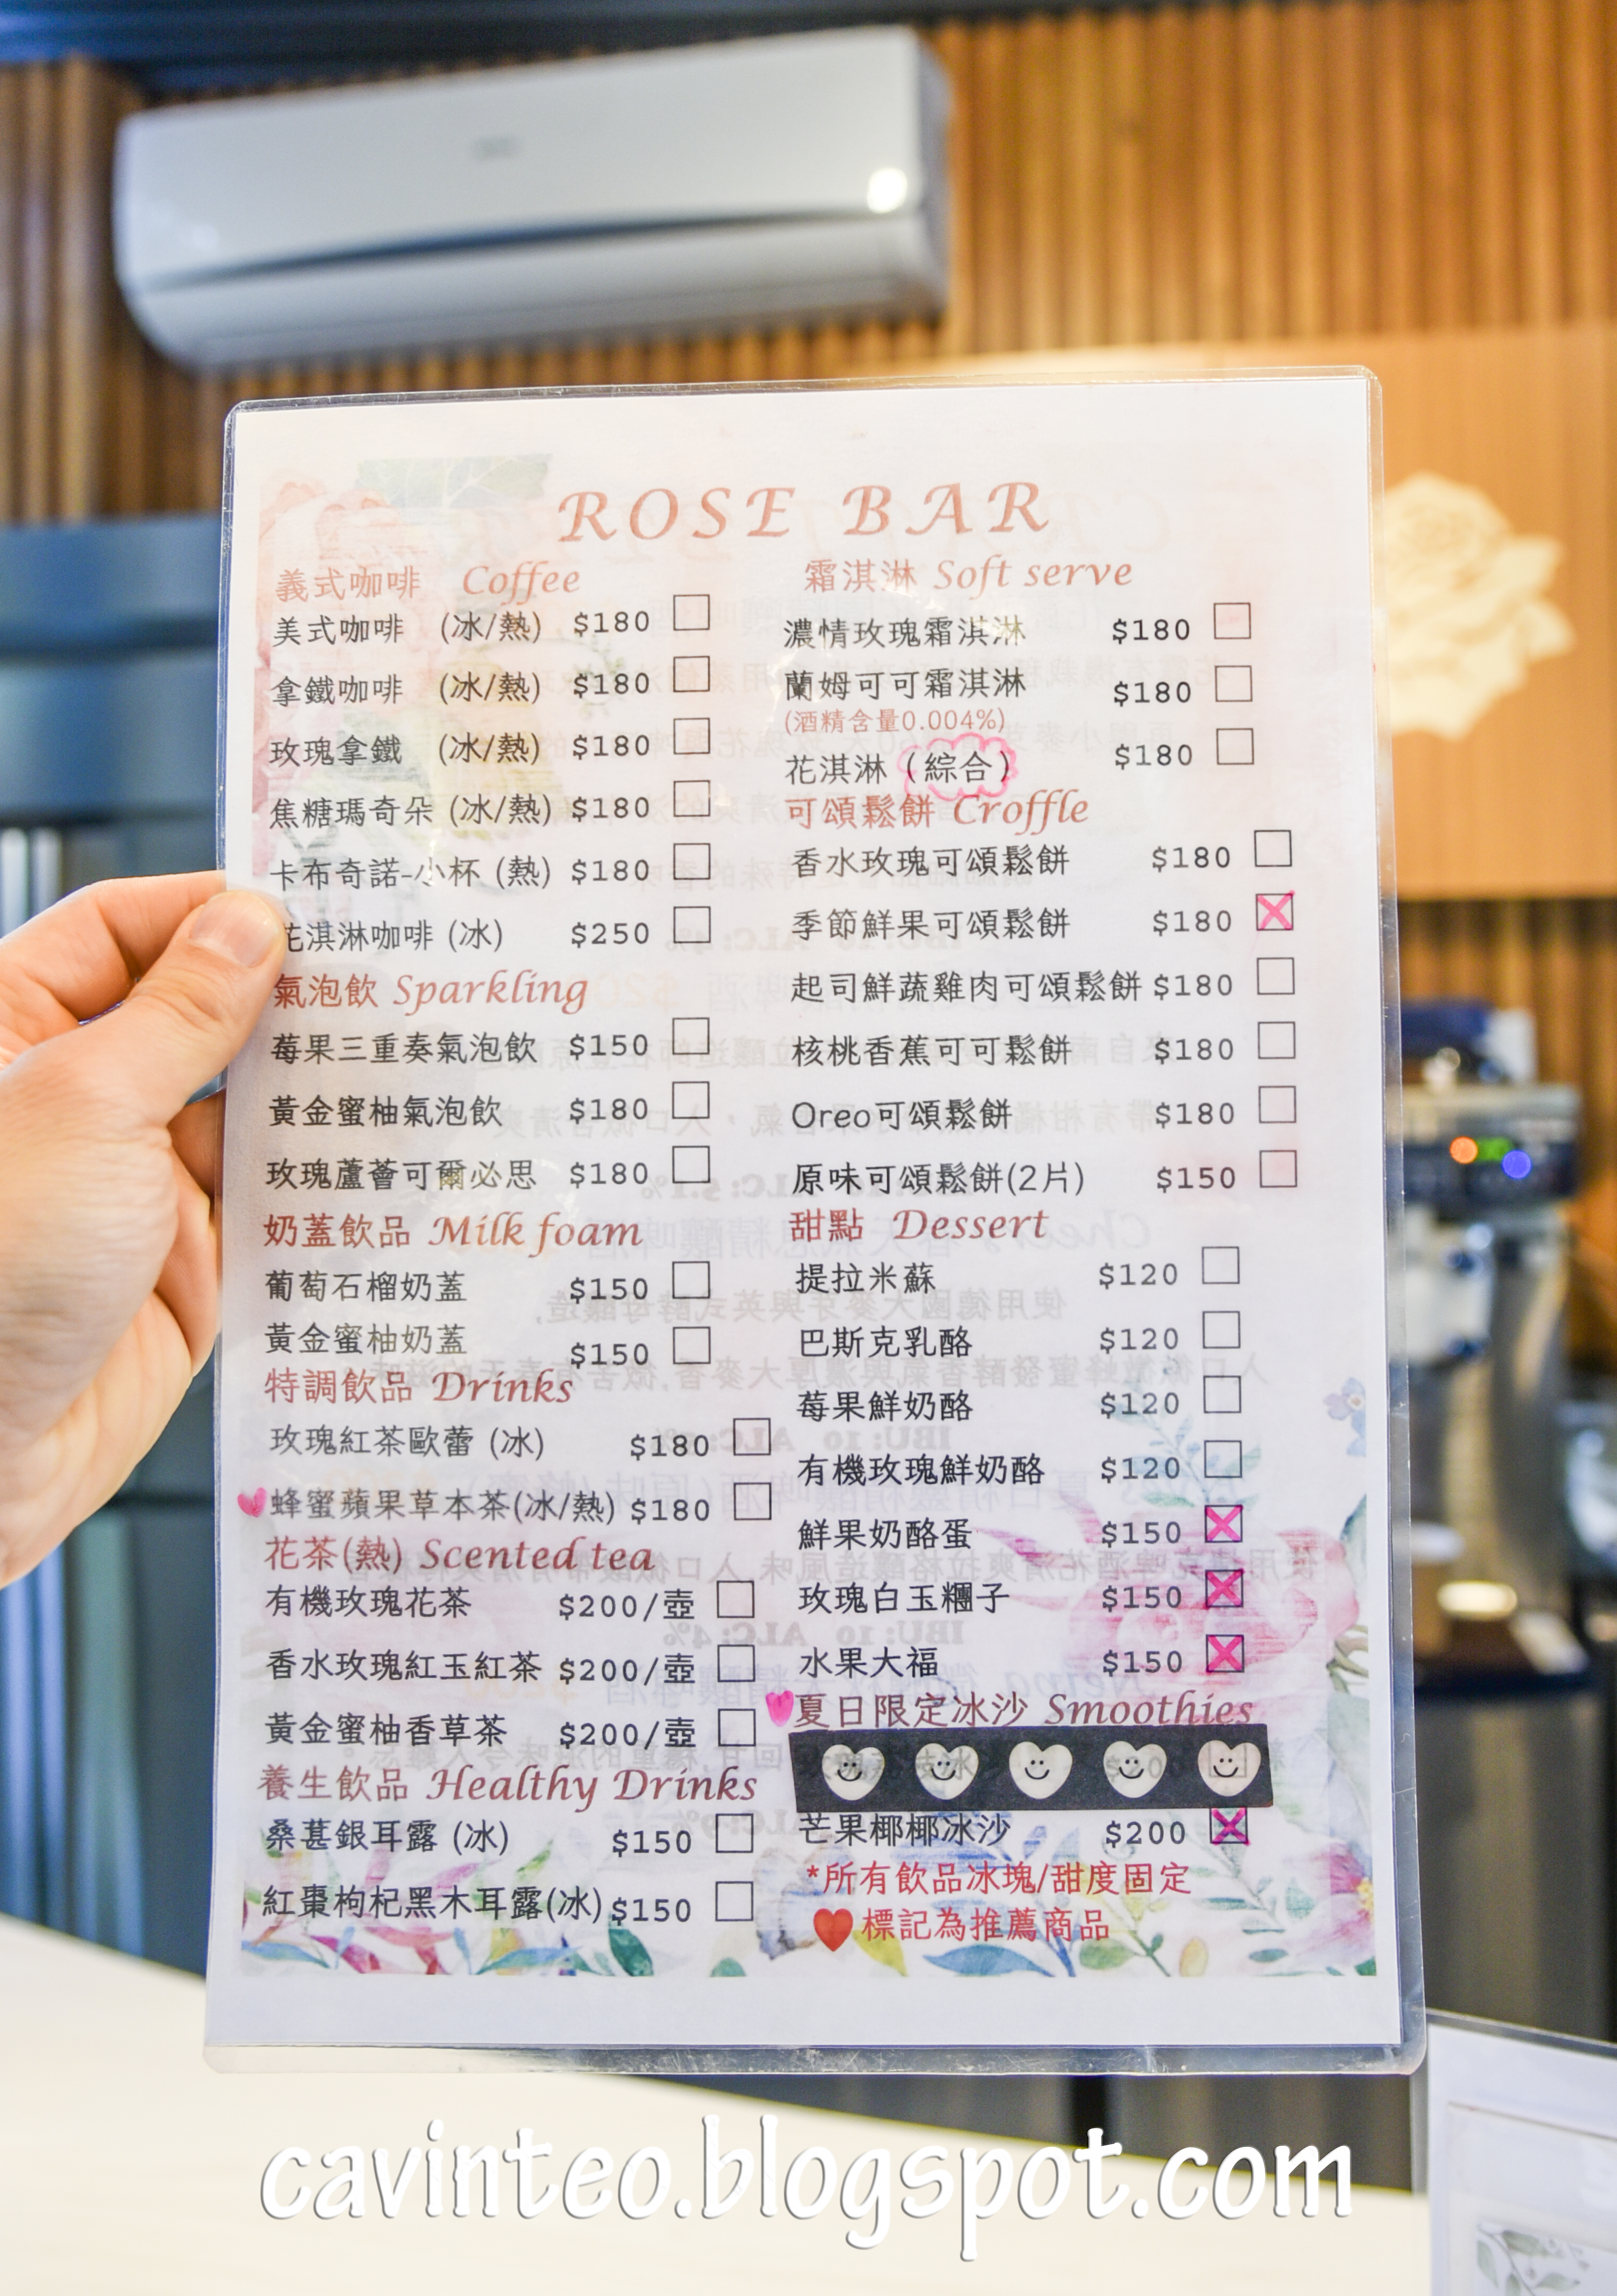 ROSE BAR
義式咖啡 Coffee
美式咖啡 (冰/熱) $180
拿鐵咖啡 (冰/熱) $180
玫瑰拿鐵 (冰/熱) $180
焦糖瑪奇朵 (冰/熱) $180
卡布奇諾-小杯 (熱) $180
花淇淋咖啡 (冰) $250
氣泡飲 Sparkling
莓果三重奏氣泡飲 $150
黃金蜜柚氣泡飲 $180
玫瑰蘆薈可爾必思 $180
奶蓋飲品 Milk foam
葡萄石榴奶蓋 $150
黃金蜜柚奶蓋 $150
特調飲品 Drinks
玫瑰紅茶歐蕾 (冰) $180
蜂蜜蘋果草本茶(冰/熱) $180
花茶(熱) Scented tea
有機玫瑰花茶 $200/壺
香水玫瑰紅玉紅茶 $200/壺
黃金蜜柚香草茶 $200/壺
養生飲品 Healthy Drinks
桑葚銀耳露 (冰) $150
紅棗枸杞黑木耳露(冰) $150
霜淇淋 Soft serve
濃情玫瑰霜淇淋 $180
蘭姆可可霜淇淋 $180
(酒精含量0.004%)
花淇淋 (綜合) $180
可頌鬆餅 Croffle
香水玫瑰可頌鬆餅 $180
季節鮮果可頌鬆餅 $180
起司鮮蔬雞肉可頌鬆餅 $180
核桃香蕉可可鬆餅 $180
Oreo可頌鬆餅 $180
原味可頌鬆餅(2片) $150
甜點 Dessert
提拉米蘇 $120
巴斯克乳酪 $120
莓果鮮奶酪 $120
有機玫瑰鮮奶酪 $120
鮮果奶酪蛋 $150
玫瑰白玉糰子 $150
水果大福 $150
夏日限定冰沙 Smoothies
芒果椰椰冰沙 $200
*所有飲品冰塊/甜度固定
標記為推薦商品
cavinteo.blogspot.com